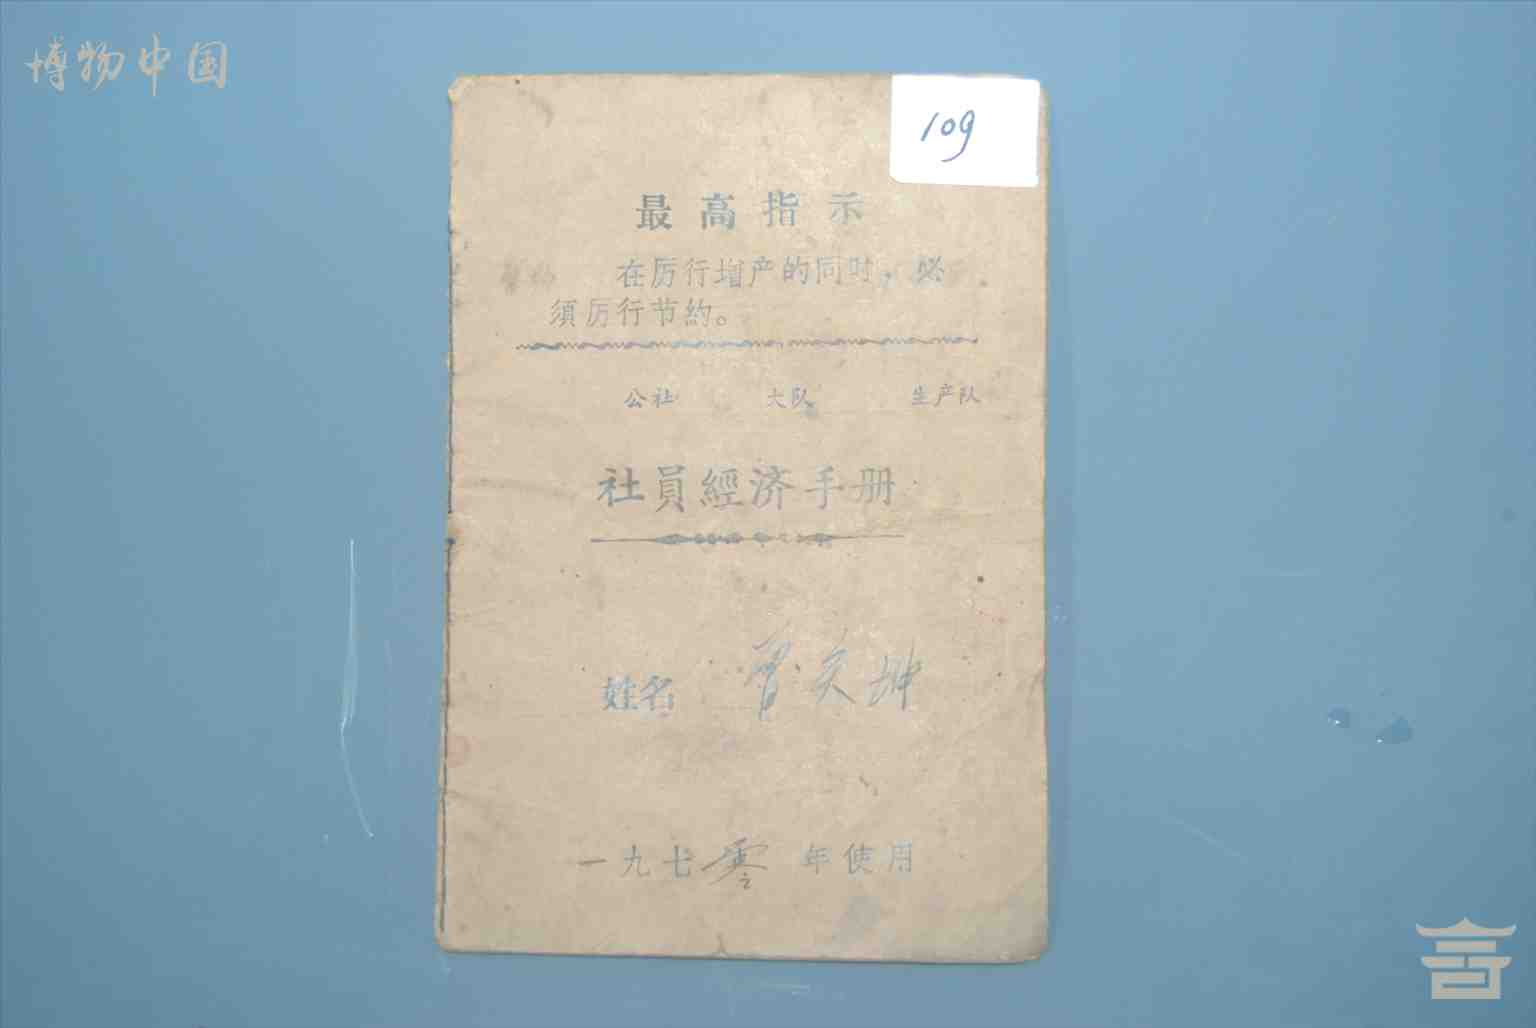 博物中国
109
最高指示
在厉行增产的同时，必
須厉行节約。
公社 大队 生产队
社員經济手册
姓名
一九七零年使用